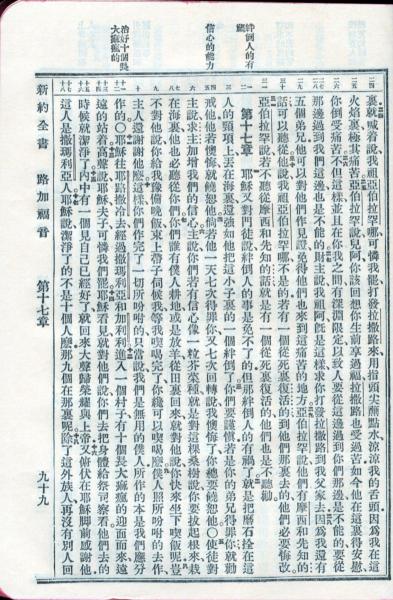 絆倒人的有禍
信心的能力
治好十個長大痲瘋的
裏就喊着說我祖亞伯拉罕哪可憐我罷打發拉撒路來用指頭尖蘸點水涼涼我的舌頭因爲我在這
火焰裏極其痛苦亞伯拉罕說兒阿你該回想你生前享過福拉撒路也受過苦如今他在這裏得安慰
你倒受痛苦不但這樣並且在你我之間有深淵限定以致人要從這邊過到你們那邊是不能的要從
那邊過到我們這邊也是不能的財主說我祖阿旣是這樣求你打發拉撒路到我父家去因爲我還有
五個弟兄他可以對他們作見證免得他們也來到這痛苦的地方亞伯拉罕說他們有摩西和先知的
話可以聽從他說我祖亞伯拉罕哪不是的若有一個從死裏復活的到他們那裏去的他們必要悔改
亞伯拉罕說若不聽從摩西和先知的話就是有一個從死裏復活的他們也是不聽勸
第十七章 耶穌又對門徒說絆倒人的事是免不了的但那絆倒人的有禍了就是把磨石拴在這
人的頸項上丟在海裏還強如他把這小子裏的一個絆倒了你們要謹慎若是你的弟兄得罪你就勸
戒他他若懊悔就饒恕他倘若他一天七次得罪你又七次回轉說我懊悔了你總要饒恕他○使徒對
主說求主加增我們的信心主說你們若有信心像一粒芥菜種就是對這棵桑樹說你要拔起根來栽
在海裏他也必聽從你們你們誰有僕人耕地或是放羊從田裏回來就對他說你快來坐下喫飯呢豈
不對他說你給我豫備晚飯束上帶子伺候我等我喫喝完了你纔可以喫喝麼僕人照所吩咐的去作
主人還謝謝他麼這樣你們作完了一切所吩咐的當說我們是無用的僕人所作的本是我們應分
作的○耶穌往耶路撒冷去經過撒瑪利亞和加利利進入一個村子有十個長大痲瘋的迎面而來遠
遠的站着高聲說耶穌夫子可憐我們罷耶穌看見就對他們說你們去把身體給祭司察看他們去的
時候就潔淨了內中有一個見自己已經好了就回來大聲歸榮耀與上帝又俯伏在耶穌脚前感謝他
這人是撒瑪利亞人耶穌說潔淨了的不是十個人麼那九個在那裏呢除了這外族人再沒有別人回
新約全書 路加福音 第十七章 九十九